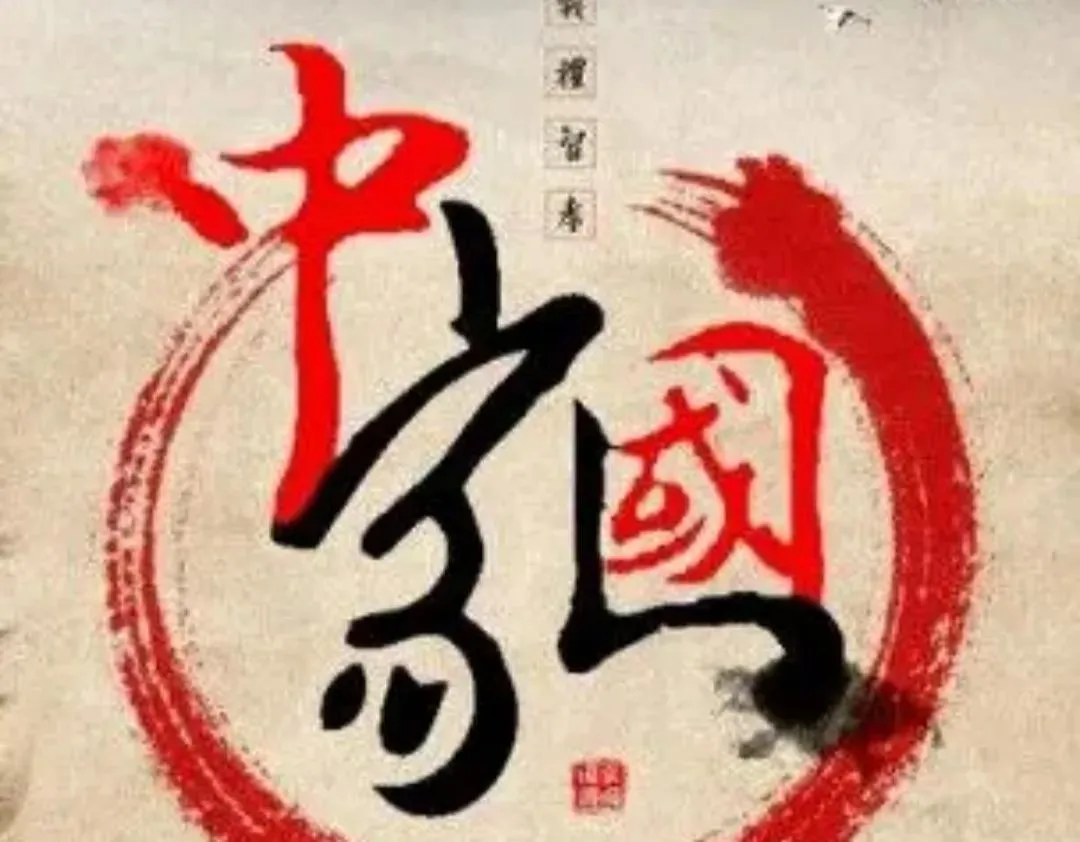 禮智孝
中家國